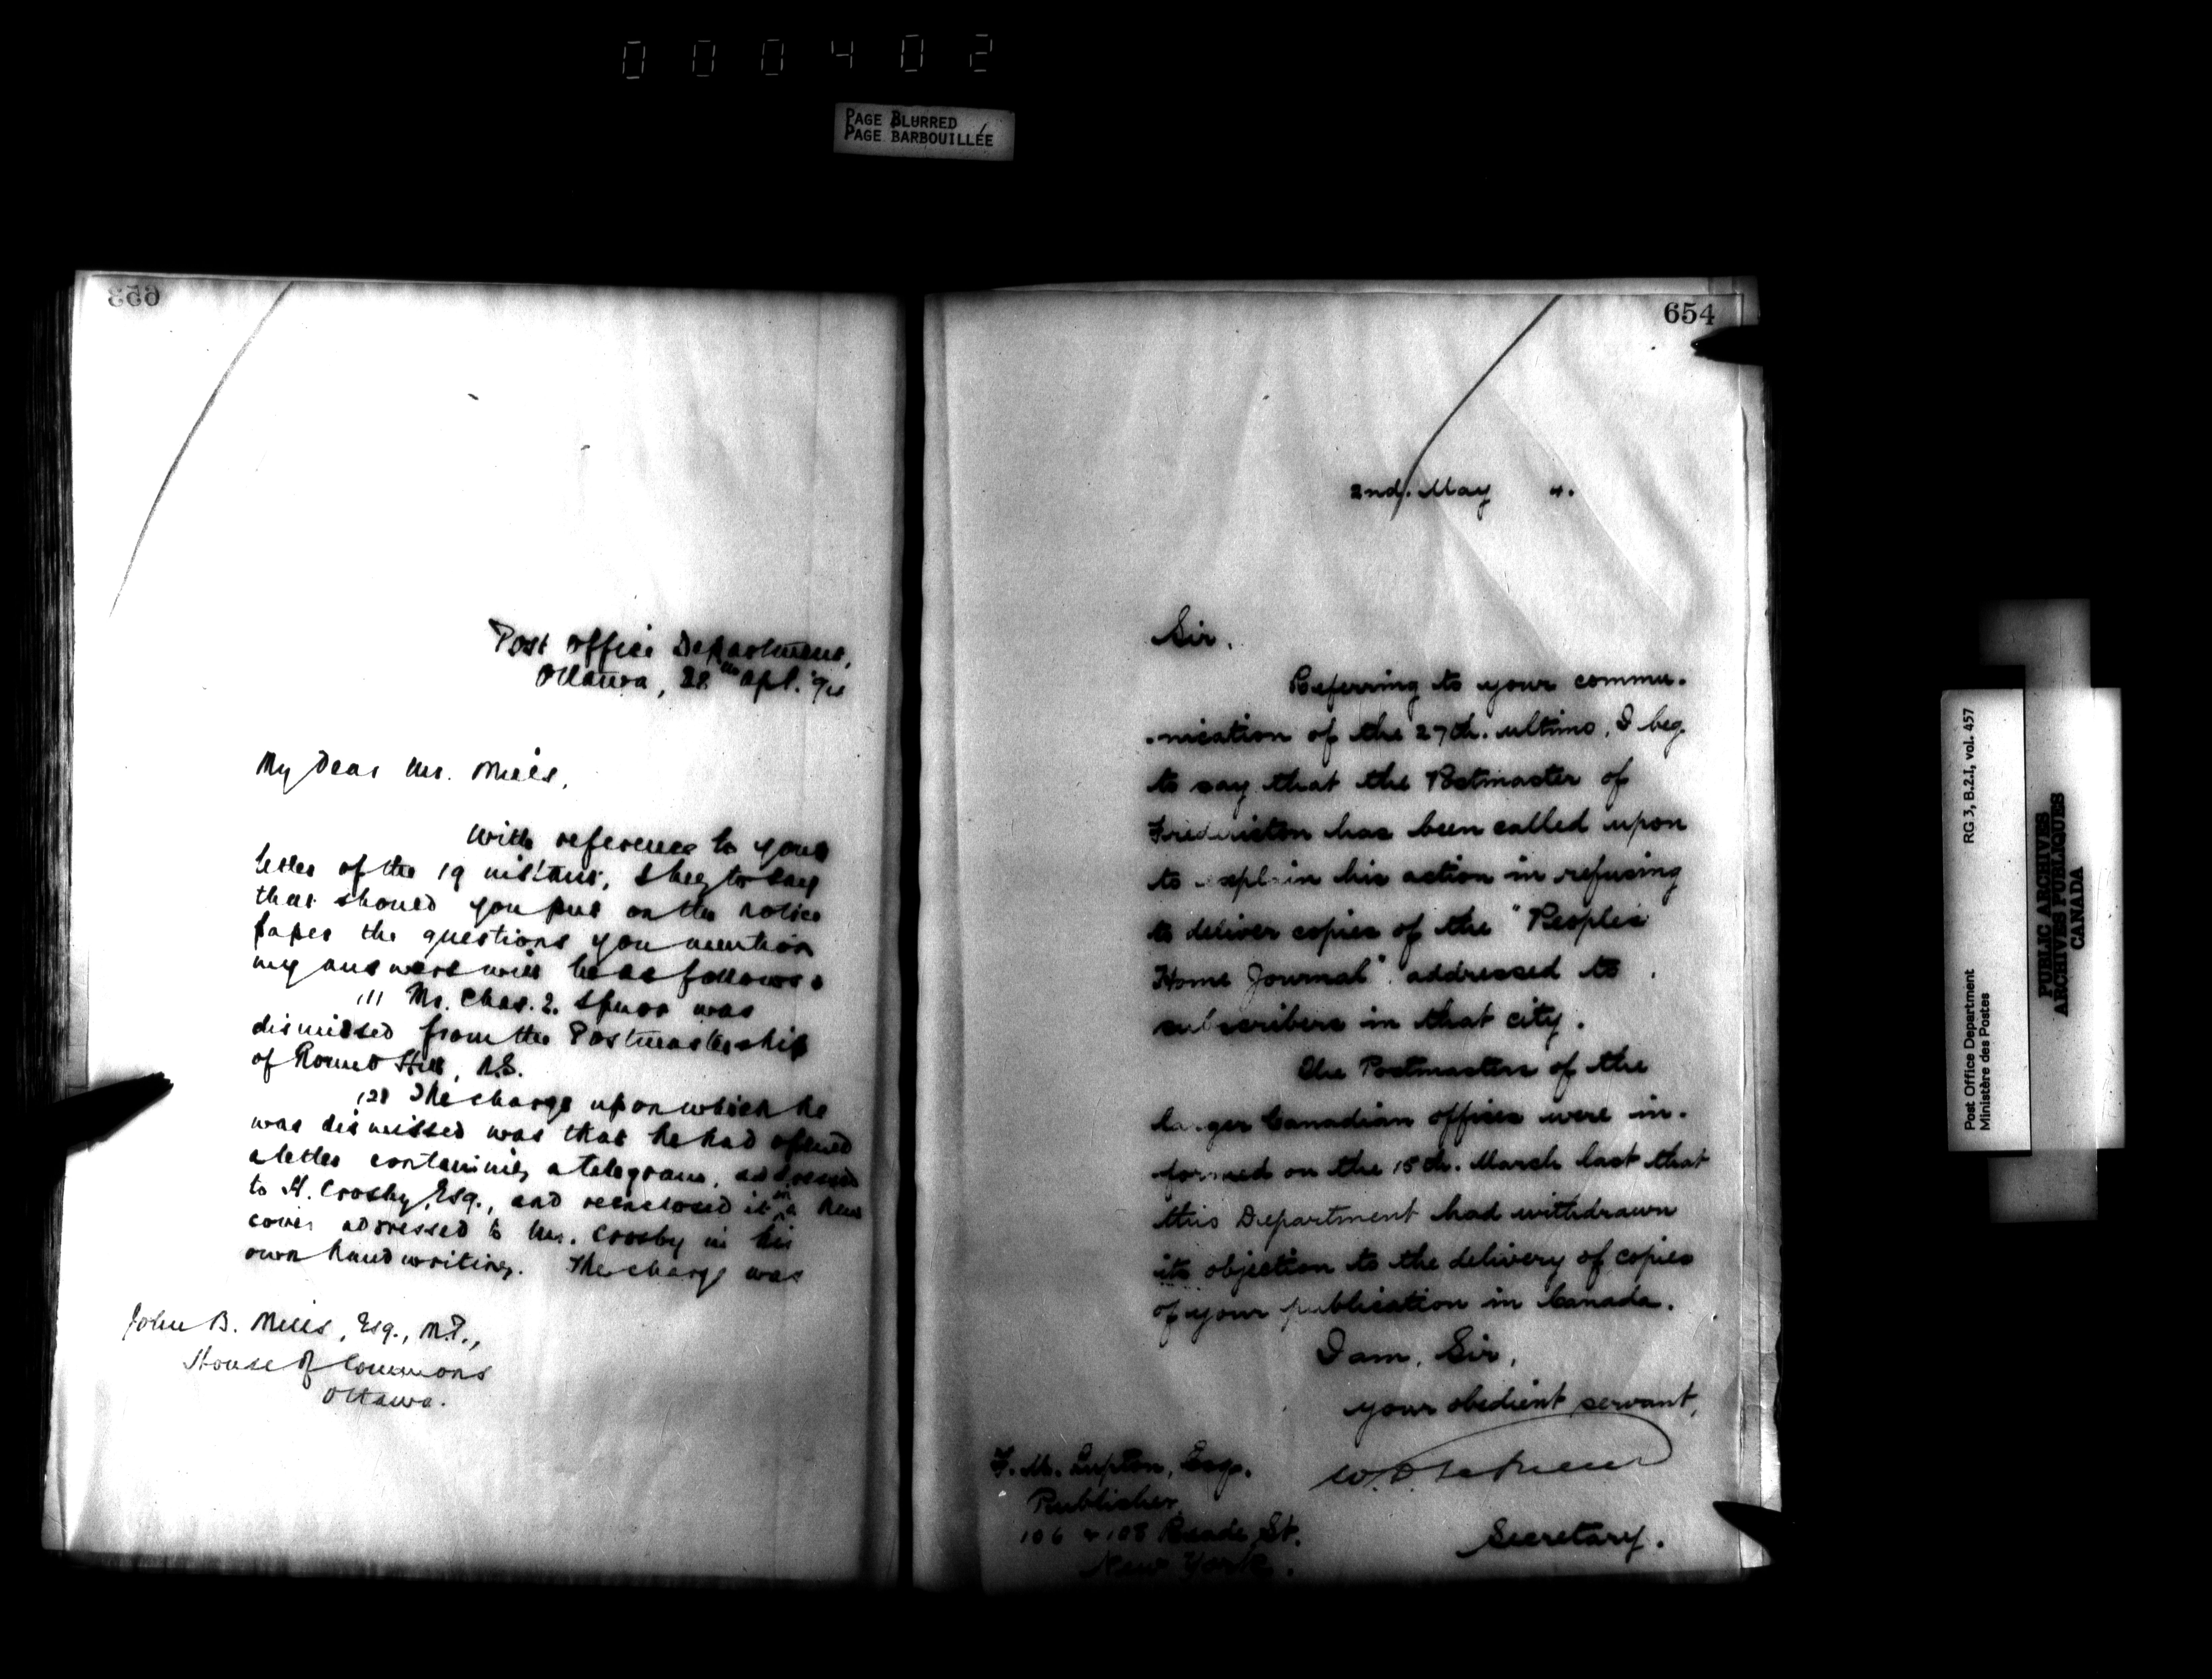 000402
PAGE BLURRED
PAGE BARBOUILLÉE
653
Post Office Department,
Ottawa, 28th Apl. '94
My Dear Mr. Mills,
With reference to your
letter of the 19 instant, I beg to say
that should you put on the notice
paper the questions you mention
my answers will be as follows:
(1) Mr. Chas. E. Spurr was
dismissed from the Postmastership
of Round Hill, N.S.
(2) The charge upon which he
was dismissed was that he had opened
a letter containing a telegram, addressed
to H. Crosby, Esq., and reenclosed it in a new
cover addressed to Mr. Crosby in his
own hand writing. The charge was
John B. Mills, Esq., M.P.,
House of Commons
Ottawa.
654
2nd. May 4.
Sir,
Referring to your commu-
-nication of the 27th. ultimo, I beg
to say that the Postmaster of
Fredericton has been called upon
to explain his action in refusing
to deliver copies of the "People's
Home Journal" addressed to
subscribers in that city.
The Postmasters of the
larger Canadian offices were in-
formed on the 15th. March last that
this Department had withdrawn
its objection to the delivery of copies
of your publication in Canada.
I am, Sir,
your obedient servant,
Secretary.
F. M. Lupton, Esq.
Publisher,
106 & 108 Reade St.
New York.
Post Office Department
Ministère des Postes
RG 3, B.2.I, vol. 457
PUBLIC ARCHIVES
ARCHIVES PUBLIQUES
CANADA